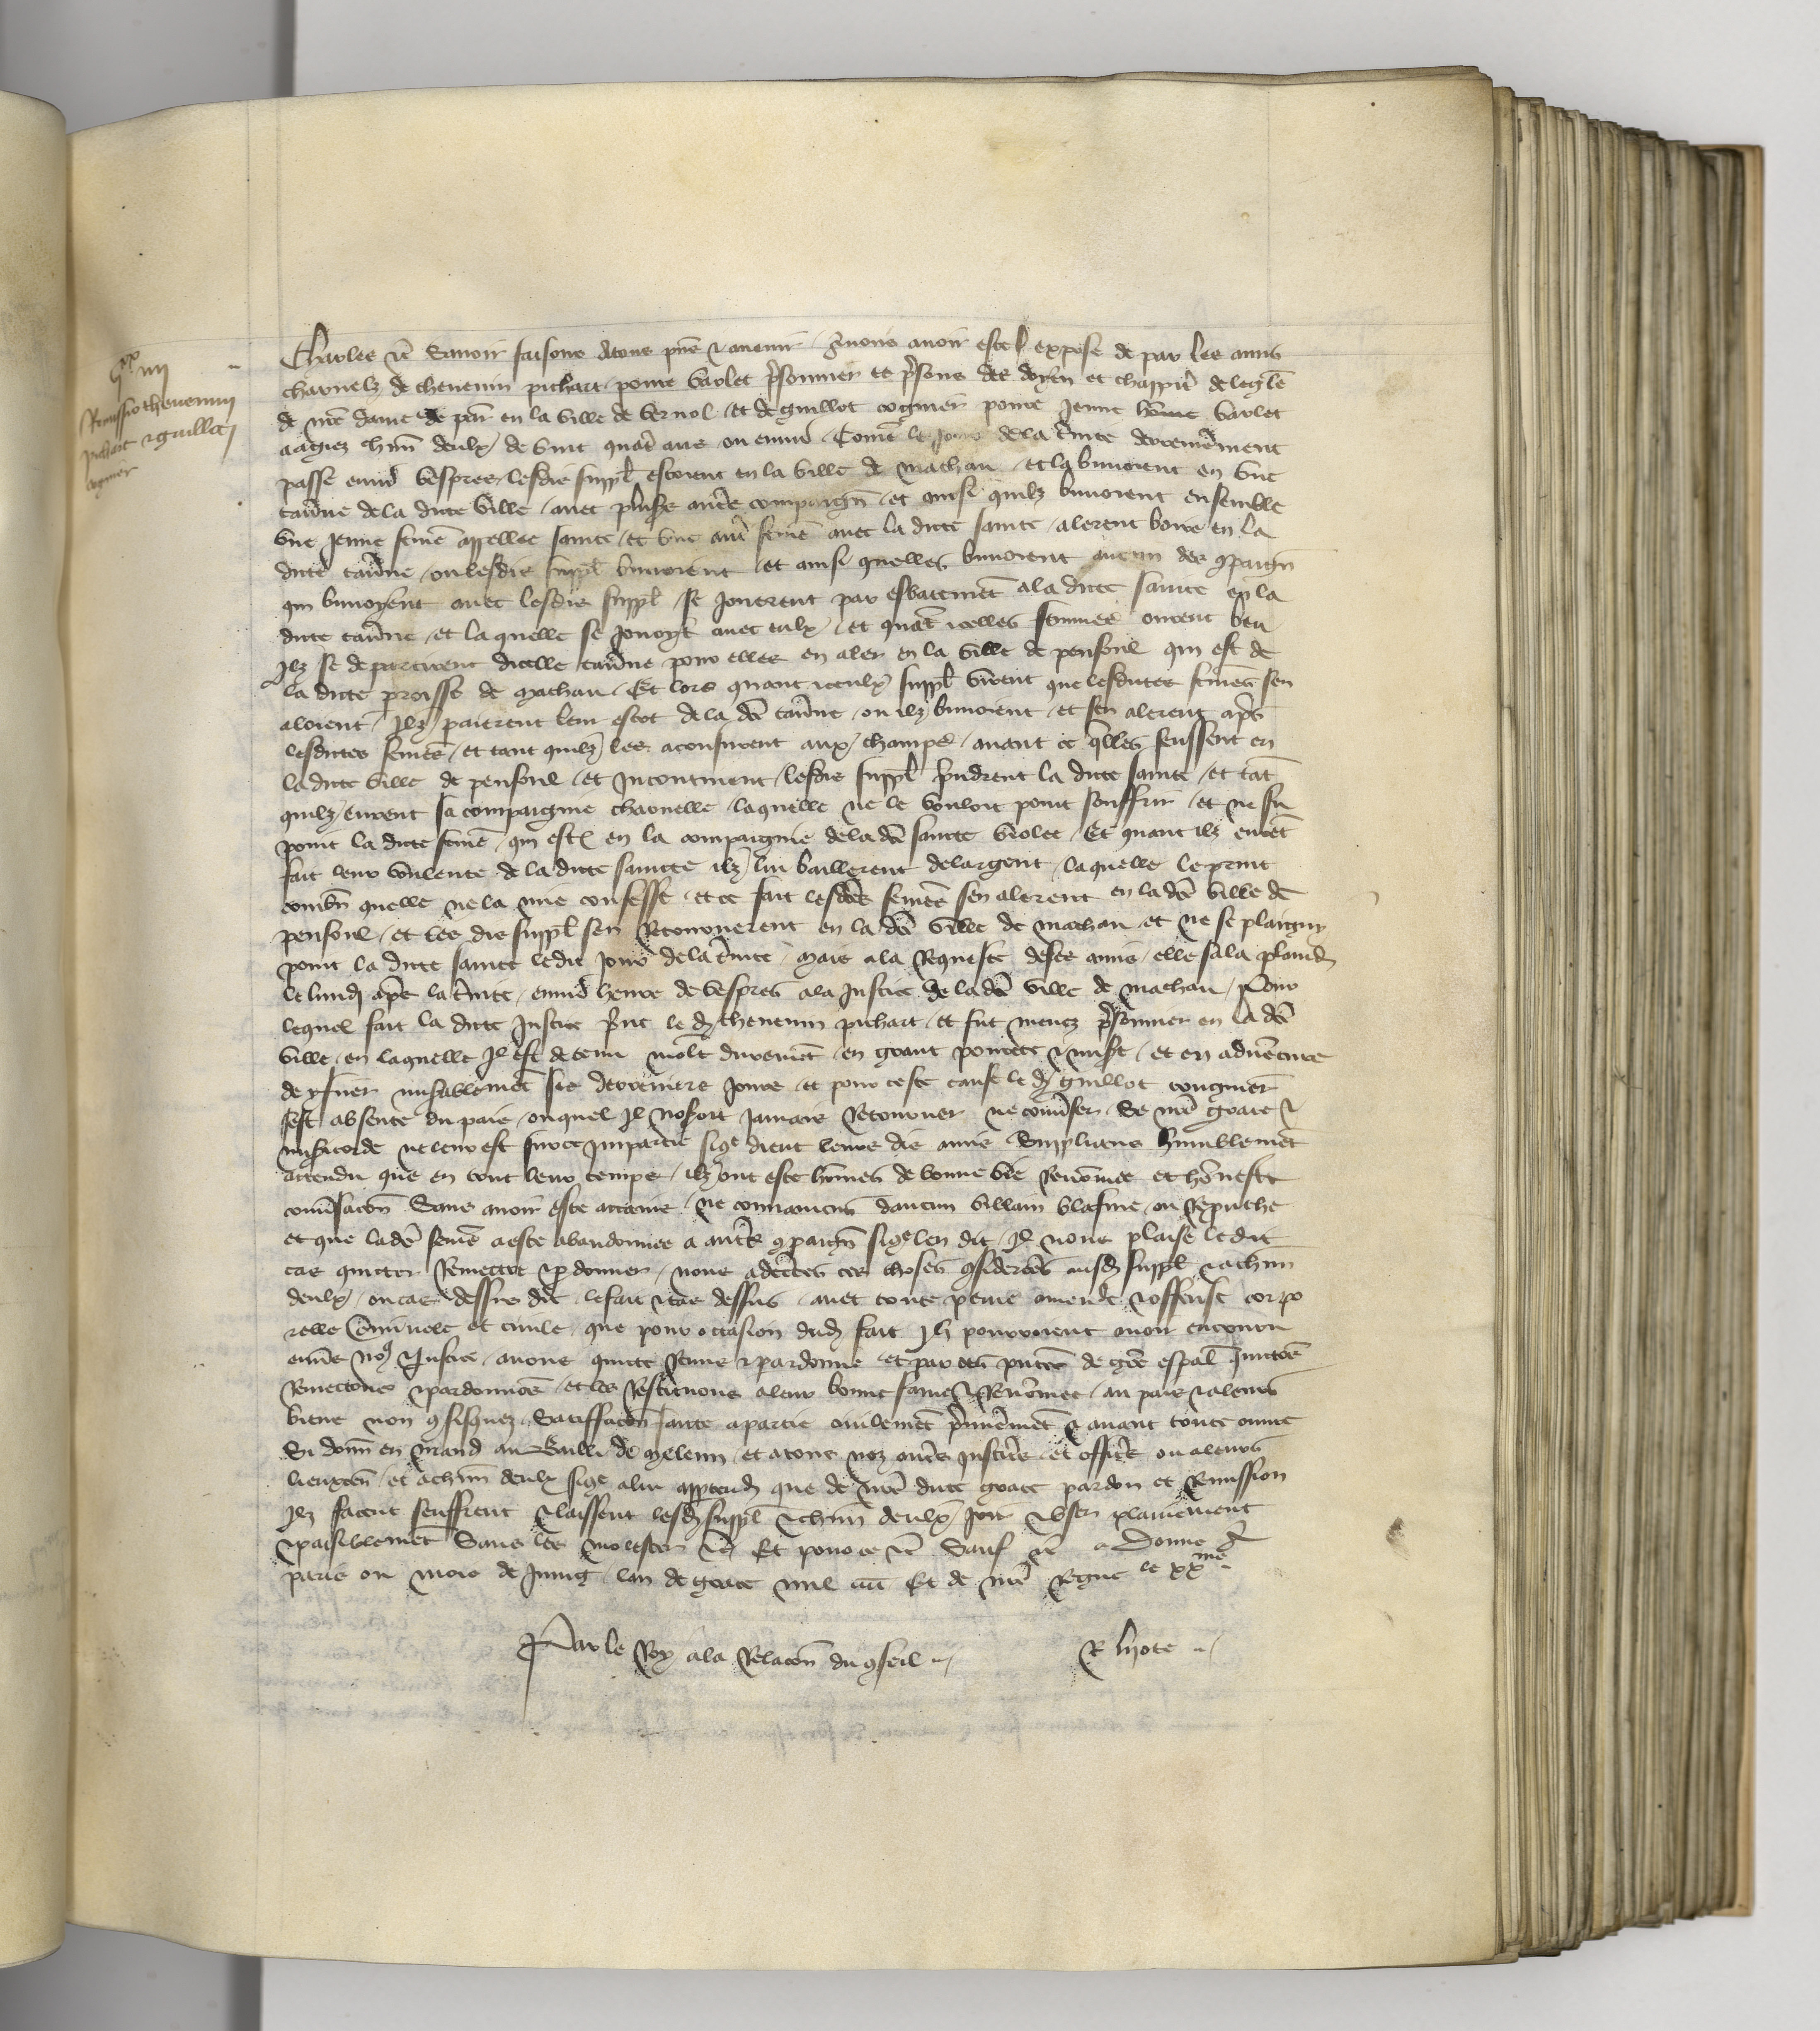 iiiixx iiii
Remissio thevenini
pichart & guilloti
cognier
Charles &c Savoir faisons a tous pñs & avenir / Nous avoir esté exposé de par les amis
charnelz de thevenin pichart / povre varlet pˀsonnier es pˀsons des doyen et chappitˀ de leglˀe
de nrˀe dame de parˀ en la ville de vernol / et de guillot cognier povre jeune hom̃e varlet
aagiez chũn deulx / de vint quatˀ ans ou envirˀ / Com̃e le jour de la tˀnite derrenierement
passé envirˀ vespres / lesdis supplˀ estoient en la ville de machau / et la buvoient en une
tavˀne de la dicte ville / avec plusˀs autˀes compaignˀ / et ainsi quilz buvoient ensemble
une jeune fem̃e appellee sainte / et une autˀ fem̃e avec la dicte sainte / alerent boire en la
dicte tavˀne / ou lesdis supplˀ buvoient et ainsi quelles buvoient aucun des ꝯpaignˀ
qui buvoyent avec lesdis supplˀ / se jouerent par esbatemẽt a la dicte sainte en la
dicte tavˀne / et la quelle se jouoyt avec eulx / et quãt icelles femmes eurent beu
Ilz se departirent dicelle tavˀne pour elles en aler en la ville de penfoul qui est de
la dicte proisse de machau / Et lors quant iceulx supplˀ virent que lesdictes fem̃es sen
aloient / Ilz paierent leur escot de la dcˀe tavˀne / ou ilz buvoient / et sen alerent apˀs
lesdictes fem̃es / et tant quilz les aconsuirent aux champs / avant ce qˀlles feussent en
ladicte ville de penfoul / et incontinent / lesdis supplˀ pˀndrent la dicte sainte / et tãt
quilz eurent sa compaignie charnelle / laquelle ne le vouloit point souffrir / et ne fu
point la dicte fem̃e / qui estˀ en la compaignie de la dcˀe sainte violee / Et quant ilz eurẽt
fait leur voulente de la dicte saincte ilz lui baillerent de largent / laquelle le print
combñ quelle ne la mie confessé / et ce fait lesdcˀes fem̃es sen alerent en la dcˀe ville de
penfoul / et les dis supplˀ sen retournerent en la dcˀe ville de machau et ne se plaigny
point la dicte saincte ledit jour de la tˀnite / mais a la requeste de ses amis / elle sala plaindˀ
le lundi apˀs la tˀnite / envirˀ heure de vespres a la justice de la dcˀe ville de machau / Pour
lequel fait la dicte justice pˀnt le dˀ thevenin pichart / et fut menez pˀsonnier en la dcˀe
ville / en laquelle Il est detenu molˀt durement / en grant povreté & misˀe / et en advẽture
de y finer misˀablemẽt ses derreniers jours / et pour ceste cause le dˀ guillot congnier
sest absenté du pais / ouquel Il noseroit jamais retourner ne convˀser / Se nrˀe grace &
misˀicorde ne leur est sur ce impartie sicˀe dient leurs dis amis Supplians humblemẽt
attendu que en tout leur temps / ilz ont esté hom̃es de bonne vie renom̃ee et hõneste
convˀsacõn Sans avoir esté attains / ne convaincus daucun villain blasme / ou reprˀuche
et que ladcˀe fem̃e a esté abandonnee a autˀes ꝯpaignˀ sicˀe len dit / Il nous plaise ledit
cas quicter remectre & pardonner / nous adcˀertes ces choses ꝯsiderees ausdˀ supplˀ & a chũn
deulx / ou cas dessus dit / le fait & cas dessus / avec toute peine amende & offense corpo
relle Criminele et civile / que pour occasion dudˀ fait Ilz pourroient avoir encouru
envˀs noˀ & justice / avons quicté remis & pardonné / et par ces pñtes de grˀe espalˀ quictõs
remectons & pardonnons / et les restituons a leur bonne fame & renom̃ee / au pais & a leurs
biens non ꝯfisquez / Satisfacõn faicte a partie civilemẽt pˀmieremẽt & avant toute euvre
Si donñ en mandˀ au Bailli de meleun / et a tous noz autˀes justicˀs / et officˀs ou a leurs
lieuxten̄ / et a chũn deulx sicˀe a lui appartendˀ que de nrˀe dicte grace pardon et remission
Ilz facent seuffrent & laissent lesdˀ supplˀ & chũn deulx joir & user plainement
& paisiblemẽt Sans les molester &c / Et pour ce &c Sauf &c Donné a
paris ou mois de juing / lan de grace mil cccc Et de nrˀe Regne le xxme
Par le Roy a la relacõn du ꝯseil
R lyote